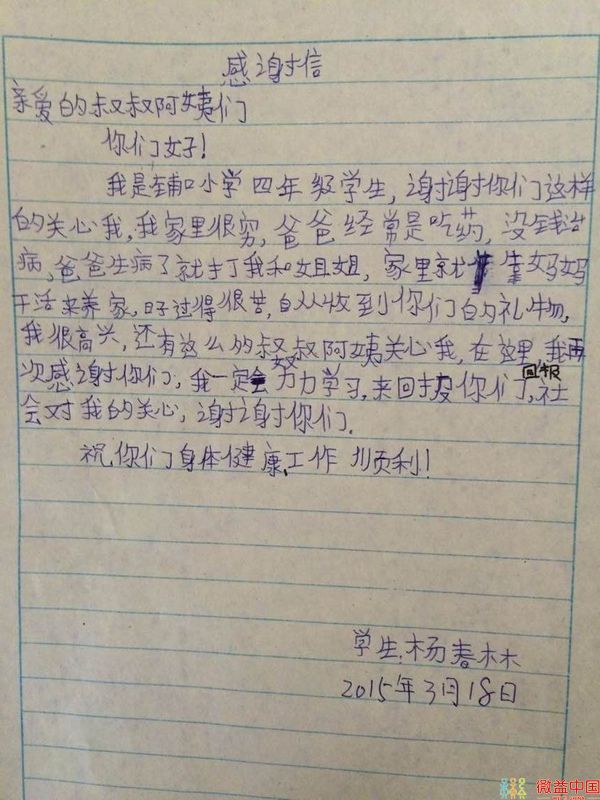 感谢信
亲爱的叔叔阿姨们
你们好!
我是铺口小学四年级学生,谢谢你们这样
的关心我,我家里很穷,爸爸经常是吃药,没钱治
病,爸爸生病了就打我和姐姐,家里就靠妈妈
干活来养家,日子过得很苦,自从收到你们的礼物,
我很高兴,还有这么的叔叔阿姨关心我,在这里我再
次感谢你们,我一定会努力学习,来回报你们回报,社
会对我的关心,谢谢你们.
祝你们身体健康,工作顺利!
学生:杨春林
2015年3月18日
微益中国